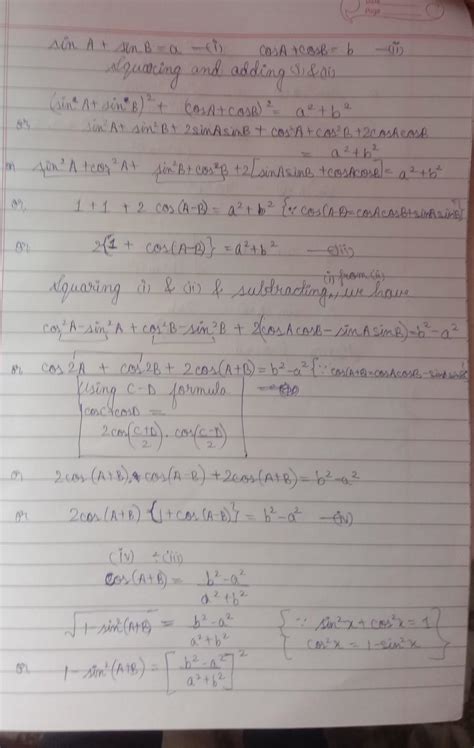 Date
Page
sin A + sin B = a —(i)      cosA + cosB = b —(ii)
Squaring and adding (i) & (ii)
(sin A + sin B)² + (cosA + cosB)² = a² + b²
or sin²A + sin²B + 2sinAsinB + cos²A + cos²B + 2cosAcosB
= a² + b²
or sin²A + cos²A + sin²B + cos²B + 2[sinAsinB + cosAcosB] = a² + b²
or 1 + 1 + 2 cos(A-B) = a² + b² {∵ cos(A-B) = cosAcosB + sinAsinB}
or 2{1 + cos(A-B)} = a² + b² —(iii)
Squaring (i) & (ii) & subtracting (i) from (ii), we have
cos²A - sin²A + cos²B - sin²B + 2(cosAcosB - sinAsinB) = b² - a²
or cos2A + cos2B + 2cos(A+B) = b² - a² {∵ cos(A+B) = cosAcosB - sinAsinB}
Using C-D formula
cosC + cosD =
2cos(C+D/2) . cos(C-D/2)
or 2cos(A+B) cos(A-B) + 2cos(A+B) = b² - a²
or 2cos(A+B) {1 + cos(A-B)} = b² - a² —(iv)
(iv) ÷ (iii)
cos(A+B) = b² - a² / a² + b²
√1 - sin²(A+B) = b² - a² / a² + b²  {∵ sin²x + cos²x = 1
cos²x = 1 - sin²x}
or 1 - sin²(A+B) = [b² - a² / a² + b²]²